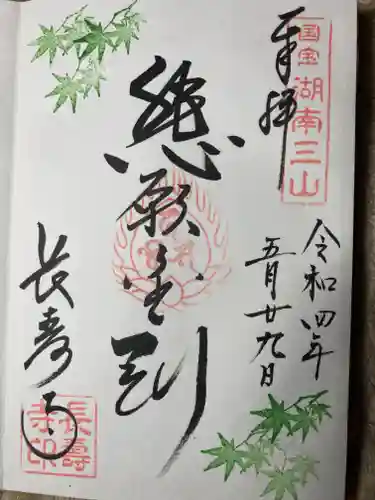 国宝
湖南三山
奉拝
令和四年
五月廿九日
總願金剛
長寿寺
長壽
寺印